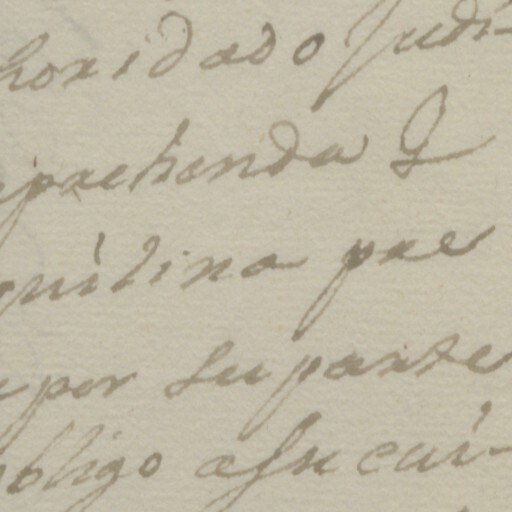 horidado Judi-
prehenda Q
quidina pre
por su parte
obligo asu cui-